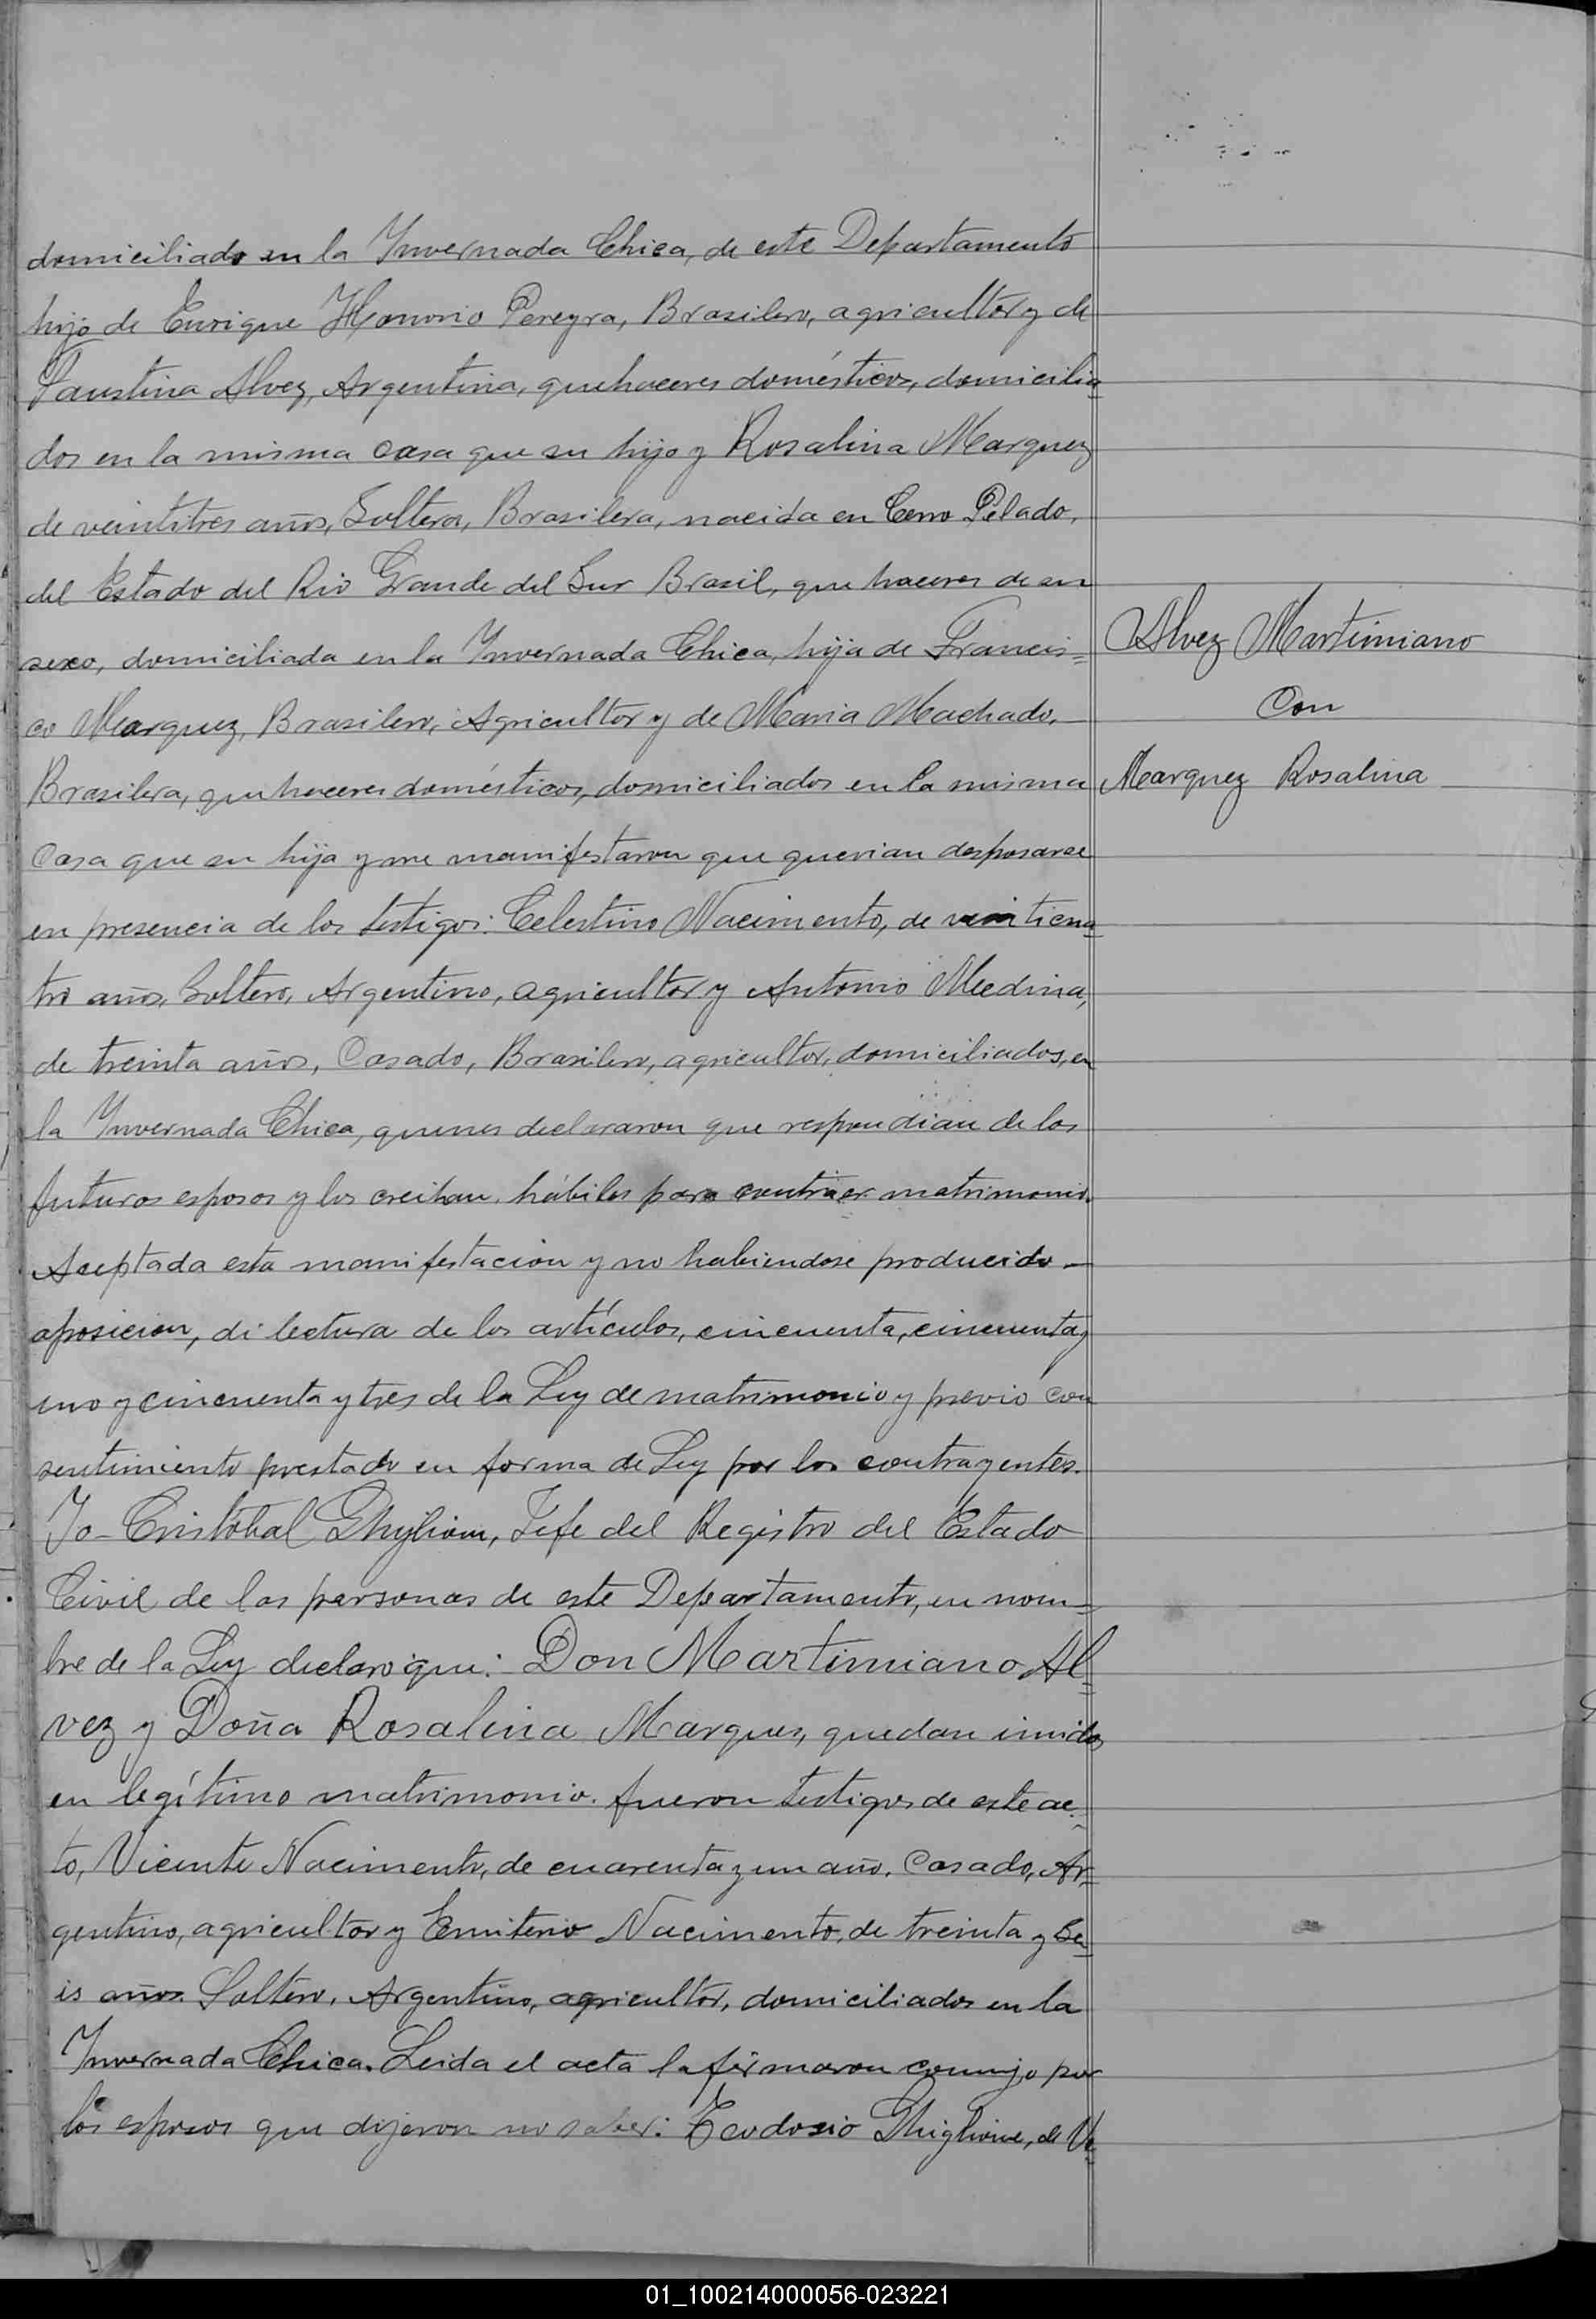 domiciliado en la Ynvernada Chica, de este Departamento
hijo de Enrique Honorio Pereyra, Brasilero, agricultor y de
Faustina Alvez, Argentina, quehaceres domésticos, domicilia=
dos en la misma casa que su hijo y Rosalina Marquez
de veintitres años, Soltera, Brasilera, nacida en Cerro Pelado,
del Estado del Rio Grande del Sur Brasil, que haceres de su
sexo, domiciliada en la Ynvernada Chica, hija de Francis=
co Marquez, Brasilero, Agricultor y de Maria Machado,
Brasilera, que haceres domésticos, domiciliados en la misma
Casa que su hija y me manifestaron que querian desposarse
en presencia de los testigos: Celestino Nacimento, de veinticua=
tro años, Soltero, Argentino, agricultor y Antonio Medina,
de treinta años, Casado, Brasilero, agricultor, domiciliados, en
la Ynvernada Chica, quienes declararon que respondian de los
futuros esposos y los creihan hábiles para contraer matrimonio.
Aceptada esta manifestación y no habiendose producido
oposicion, di lectura de los artículos, cincuenta, cincuenta y
uno y cincuenta y tres de la Ley de matrimonio y previo con
sentimiento prestado en forma de Ley por los contrayentes.
Yo Cristobal Jefe del Registro del Estado
Civil de las personas de este Departamento, en nom=
bre de la Ley declaro que: Don Martimiano Al=
vez y Doña Rosalina Marquez, quedan unidos
en legítimo matrimonio. fueron testigos de este ac=
to, Vicente Nacimento, de cuarenta y un año, Casado, Ar=
gentino, agricultor y Emiterio Nacimento, de treinta y Se=
is años Soltero, Argentino, agricultor, domiciliados en la
Ynvernada Chica. Leida el acta la firmaron conmigo por
los esposos que dijeron no saber: Teodosio Ghiglione, de Ve=
Alvez Martimiano
Con
Marquez Rosalina
01_100214000056-023221